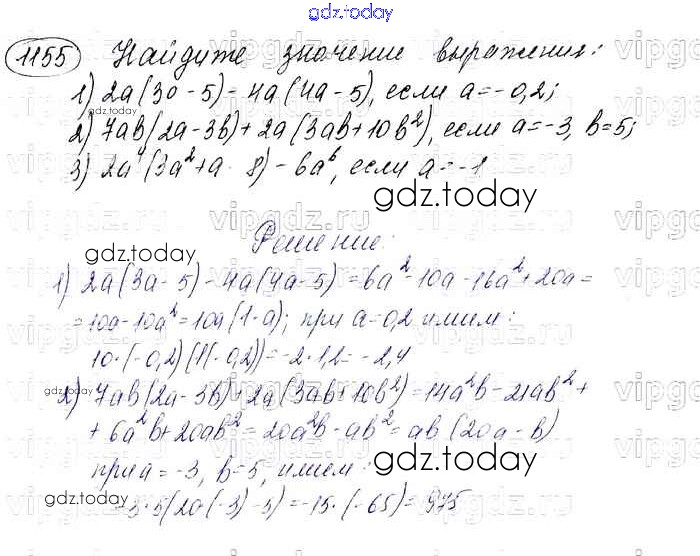 gdz.today
1155 Найдите значение выражения:
1) 2a(3a - 5) - 4a(4a - 5), если a = -0,2;
gdz.today
2) 7ab(2a - 3b) + 2a(3ab + 10b²), если a = -3, b = 5;
3) 2a⁴(3a² + a 8) - 6a⁶, если a = -1
gdz.today
gdz.today
Решение:
1) 2a(3a - 5) - 4a(4a - 5) = 6a² - 10a - 16a² + 20a =
= 10a - 10a² = 10a(1 - a); при a = 0,2 имеем:
10·(-0,2)(1(-0,2)) = -2·1,2 = -2,4
gdz.today
2) 7ab(2a - 3b) + 2a(3ab + 10b²) = 14a²b - 21ab² +
+ 6a²b + 20ab² = 20a²b - ab² = ab(20a - b)
gdz.today
при a = -3, b = 5, имеем:
gdz.today
= -3·5(20(-3) - 5) = -15·(-65) = 975